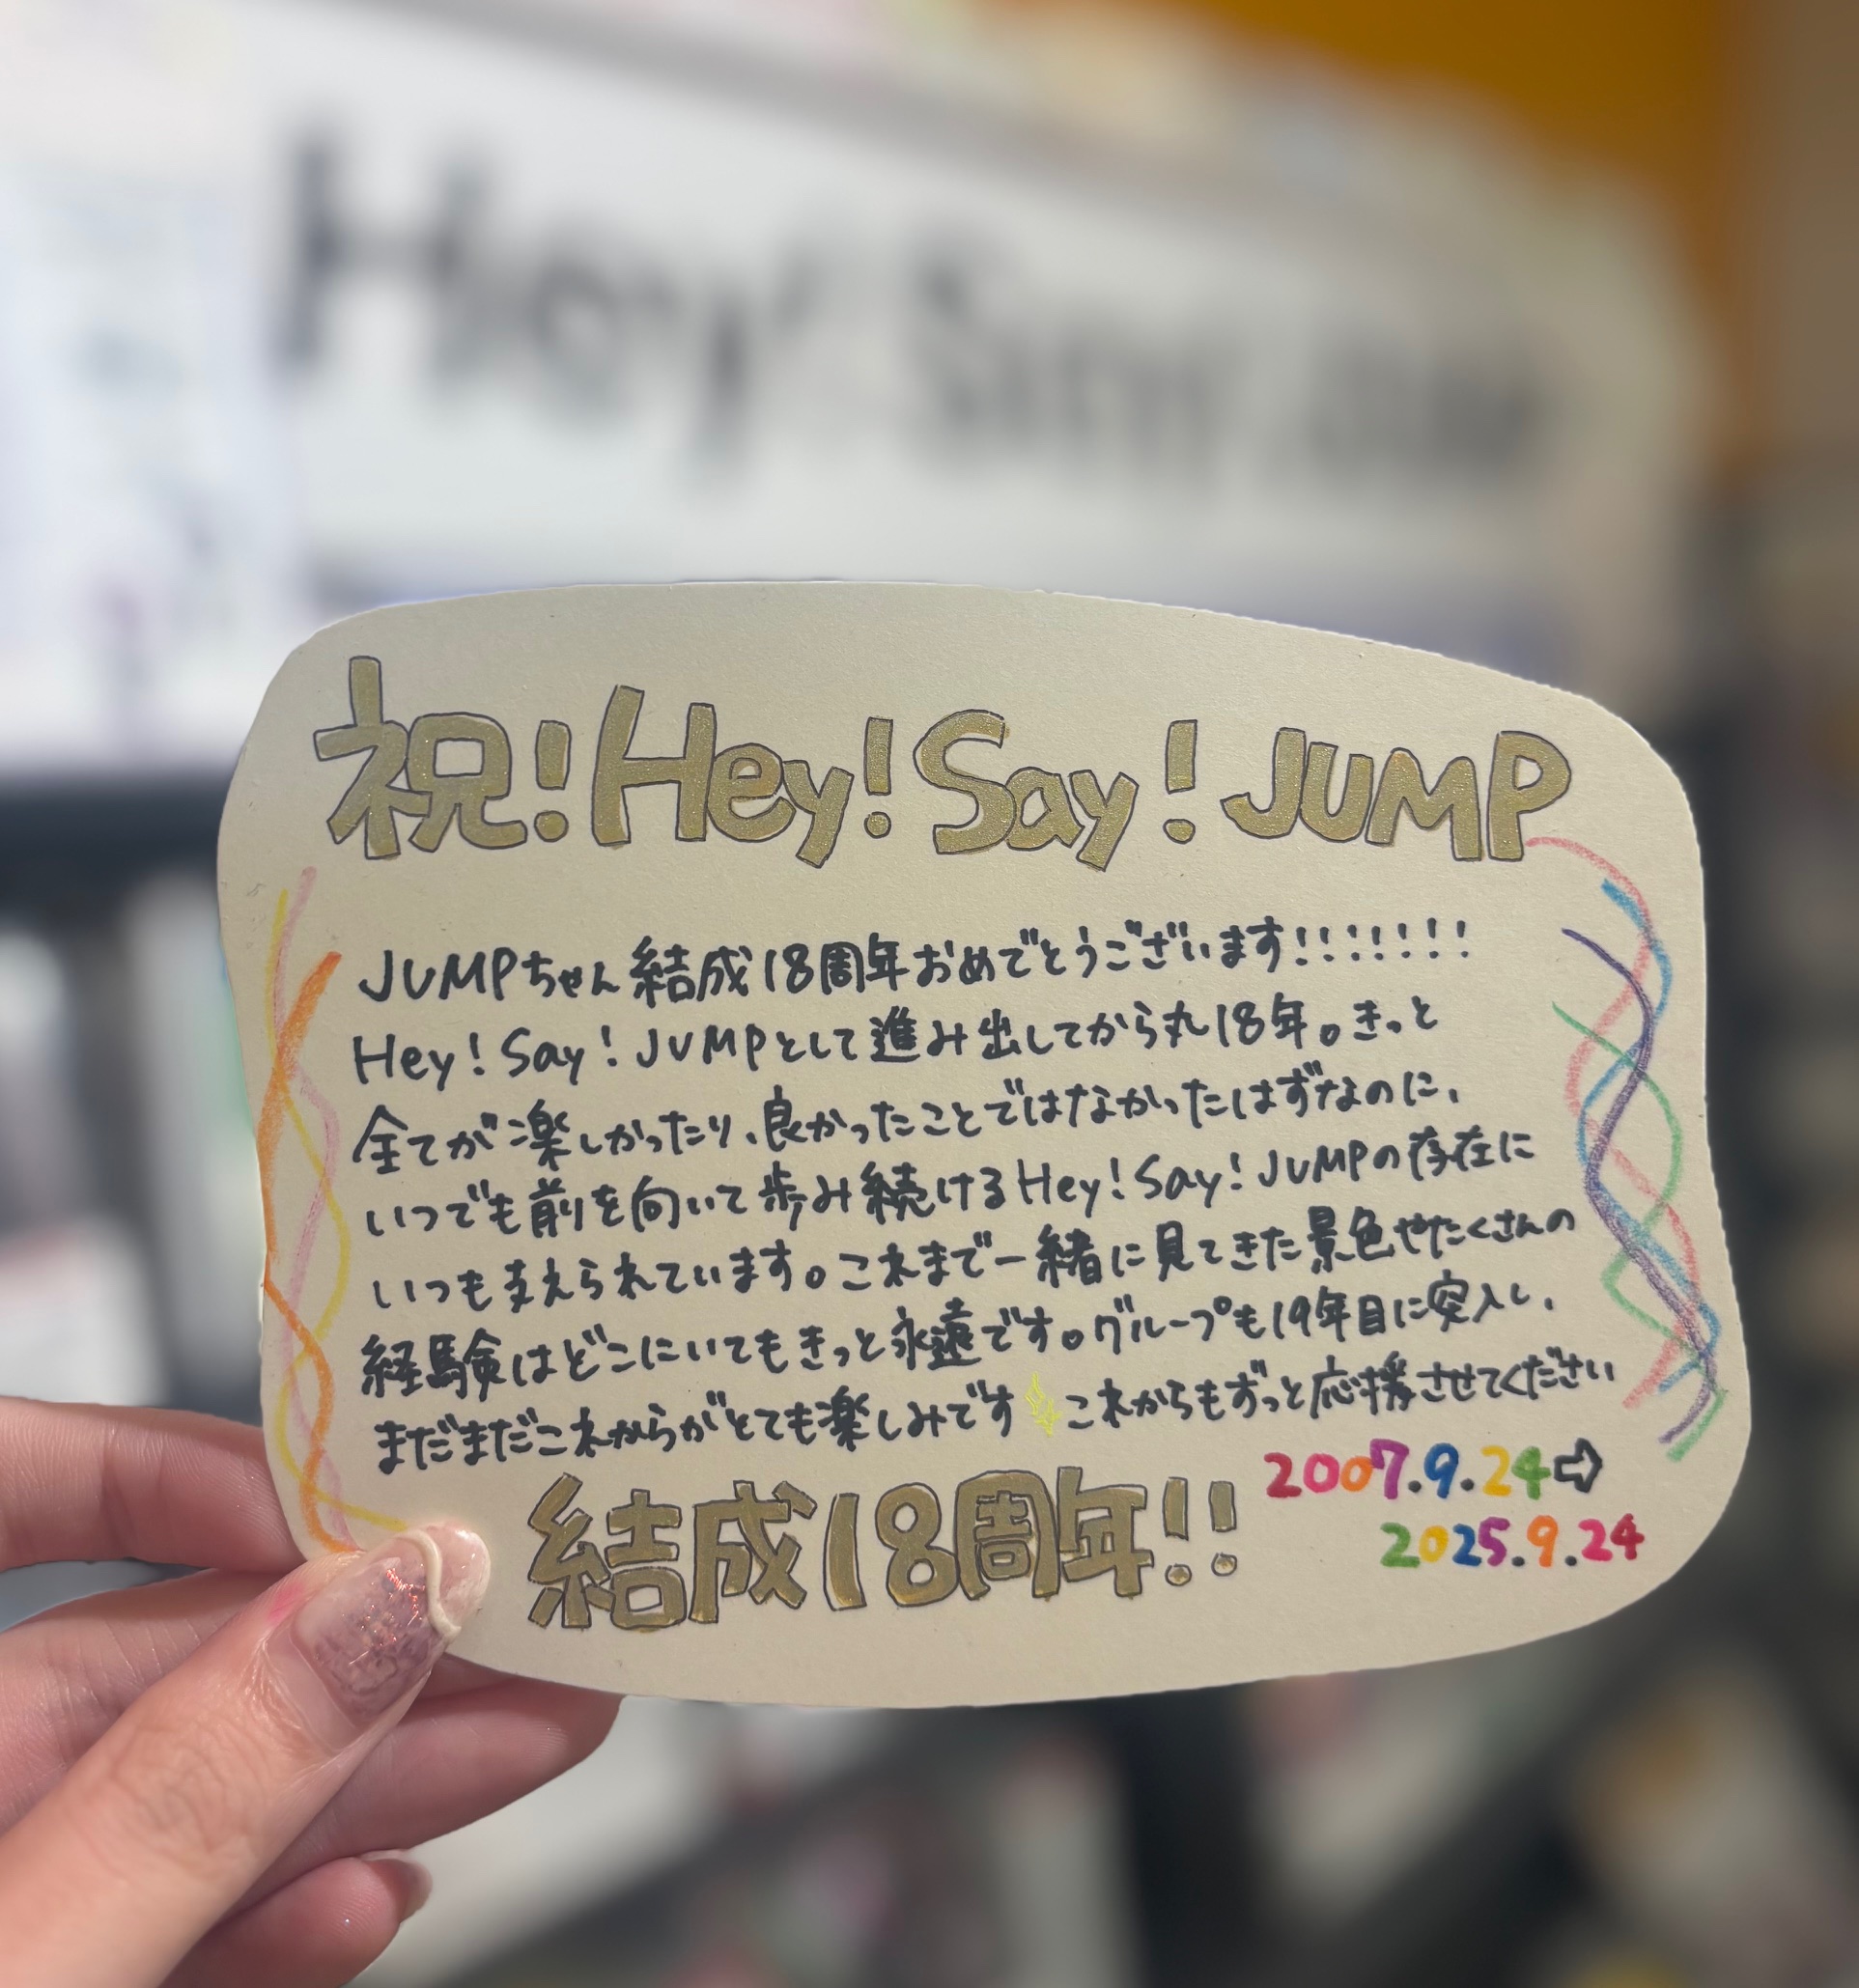 Hey! Say! JUMP
祝!Hey!Say!JUMP
JUMPちゃん結成18周年おめでとうございます!!!!!!!
Hey!Say!JUMPとして進み出してから丸18年。きっと
全てが楽しかったり、良かったことではなかったはずなのに、
いつでも前を向いて歩み続けるHey!Say!JUMPの存在に
いつも支えられています。これまで一緒に見てきた景色やたくさんの
経験はどこにいてもきっと永遠です。グループも19年目に突入し、
まだまだこれからがとても楽しみです これからもずっと応援させてください
2007.9.24⇨
2025.9.24
結成18周年!!